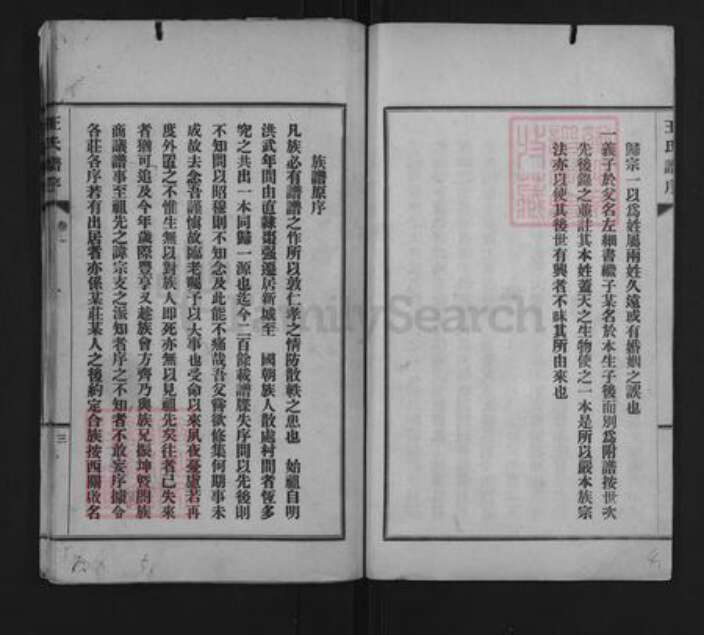 王氏譜序
歸宗一以爲姓屬兩姓久遠或有婚姻之誤也
一義子於父名左細書繼子某名於本生子後而別爲附譜按世次
先後錄之並註其本姓蓋天之生物使之一本是所以嚴本族宗
法亦以使其後世有興者不昧其所由來也
族譜原序
凡族必有譜譜之作所以敦仁孝之情防散軼之患也 始祖自明
洪武年間由直隸棗强遷居新城至 國朝族人散處村閭者恆多
究之共出一本同歸一源也迄今二百餘載譜牒失序問以先後則
不知問以昭穆則不知念及此能不痛哉吾父嘗欲修集何期事未
成故去念吾謹愼故臨老囑予以大事也受命以來夙夜憂慮若再
度外置之不惟生無以對族人即死亦無以見祖先矣往者已失來
者猶可追及今年歲際豐亨又趁族會方齊乃與族兄振坤暨閤族
商議譜事至祖先之諱宗支之派知者序之不知者不敢妄序擄令
各莊各序若有出居者亦係某莊某人之後約定合族按西關啟名
王氏譜序
卷一
三
FamilySearch